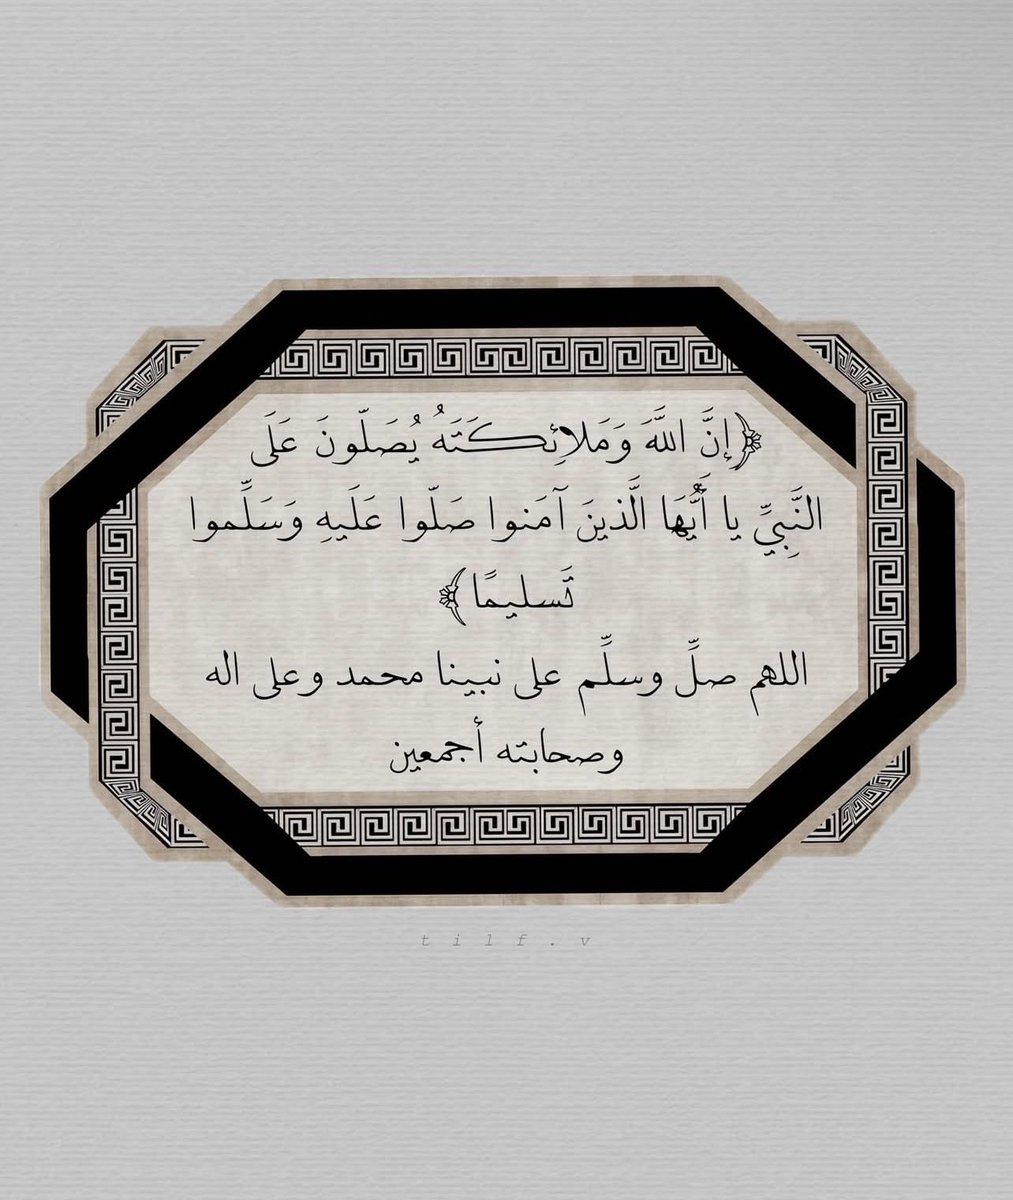 ﴿إنَّ اللَّهَ وَمَلائِكَتَهُ يُصَلّونَ عَلَى
النَّبِيِّ يا أَيُّهَا الَّذينَ آمَنوا صَلّوا عَلَيهِ وَسَلِّموا
تَسليمًا﴾
اللهم صلِّ وسلِّم على نبينا محمد وعلى اله
وصحابته أجمعين
tilf.v